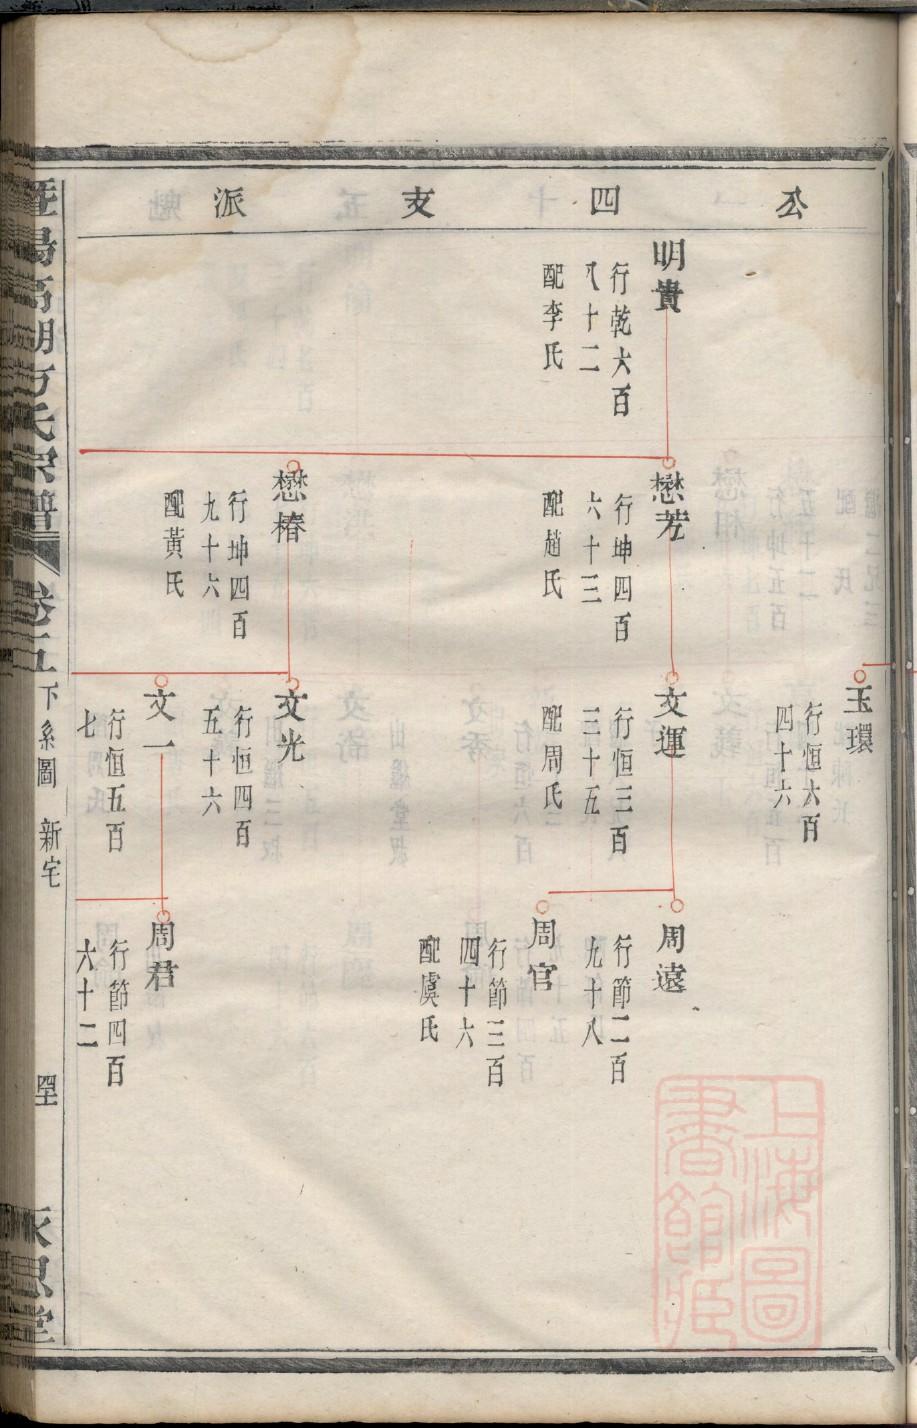 公四支派
明貴
行乾六百
八十二
配李氏
懋芳
行坤四百
六十三
配趙氏
懋椿
行坤四百
九十六
配黃氏
玉環
行恒六百
四十六
文運
行恒三百
三十五
配周氏
文光
行恒四百
五十六
文一
行恒五百
七
周遠
行節二百
九十八
周官
行節三百
四十六
配虞氏
周君
行節四百
六十二
暨陽高湖方氏宗譜
卷五
下系圖
新宅
永思堂
上海圖
書館藏